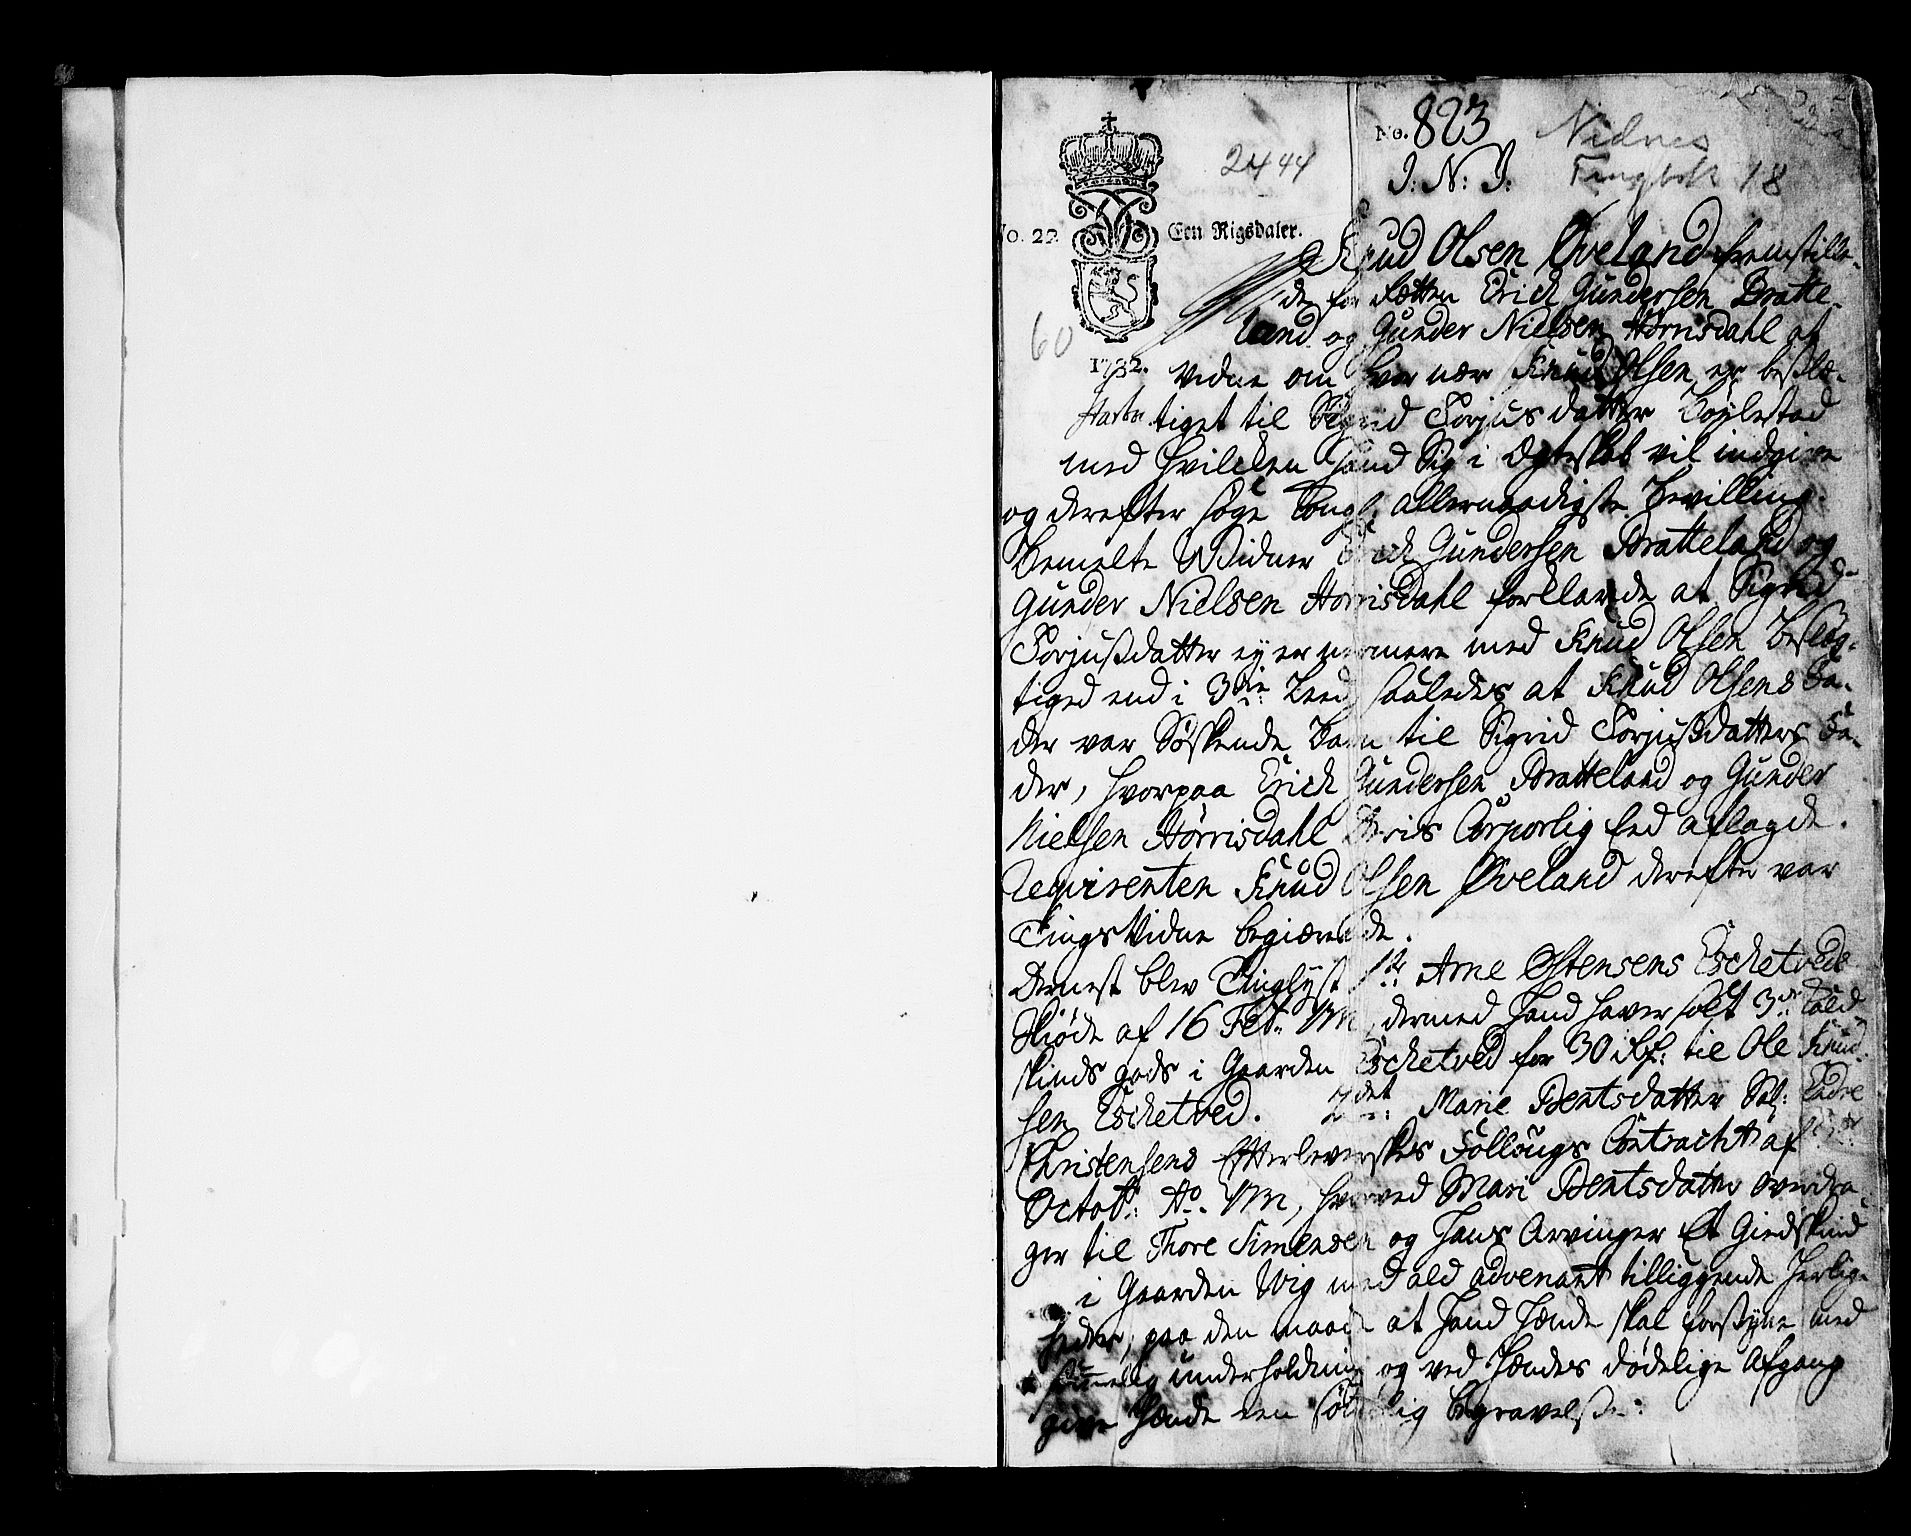 No. 823
Nidnes
2444
J: N: J:
Tingbok 18
No. 22
Een Rigsdaler.
Knud Olsen Øveland fremstille-
de for Rætten Erich Gundersen Bratte-
land og Gunder Nielsen Hørrisdahl at
60
1732.
vidne om hvor nær Knud Olsen er beslæ-
tiget til Sigrid Torjusdatter Bøylestad
med hvilcken hand Sig i Ægteskab vil indgive
og derefter søge Kongl. allernaadigste bevilling.
bemelte Widner Erich Gundersen Bratteland og
Gunder Nielsen Hørrisdahl forklarede at Sigrid
Torjusdatter ey er nermere med Knud Olsen beslæg-
tiged end i 3die Leed, saaledes at Knud Olsens Fa-
der var Søskende Barn til Sigrid Torjusdatters Fa-
der, hvorpaa Erich Gundersen Bratteland og Gunder
Nielsen Hørrisdahl deris Corporlig Eed aflagde.
Reqvirenten Knud Olsen Øveland derefter var
TingsVidne begiærende.
Dernest blev Tinglyst 1te: Arne Østensens Eschetveds
Skiøde af 16 Feb: dermed hand haver solt 3de Kald-
skinds gods i Gaarden Eschetved for 30 Rf: til Ole Knud-
sen Eschetved. 2det: Marie Bentsdatter Sal: Endre
Christensens Efterleverskes Føllougs Contract af
Octob: Ao. hvorved Mari Bentsdatter overdra-
ger til Thore Simensen og hans Arvinger Et Giedskind
i Gaarden Wig med ald advenant tilliggende herlig-
heder, paa den maade at hand hænde skal forsyne med
underholdning og ved hændes dødelige Afgang
give hænde een Begravelse: